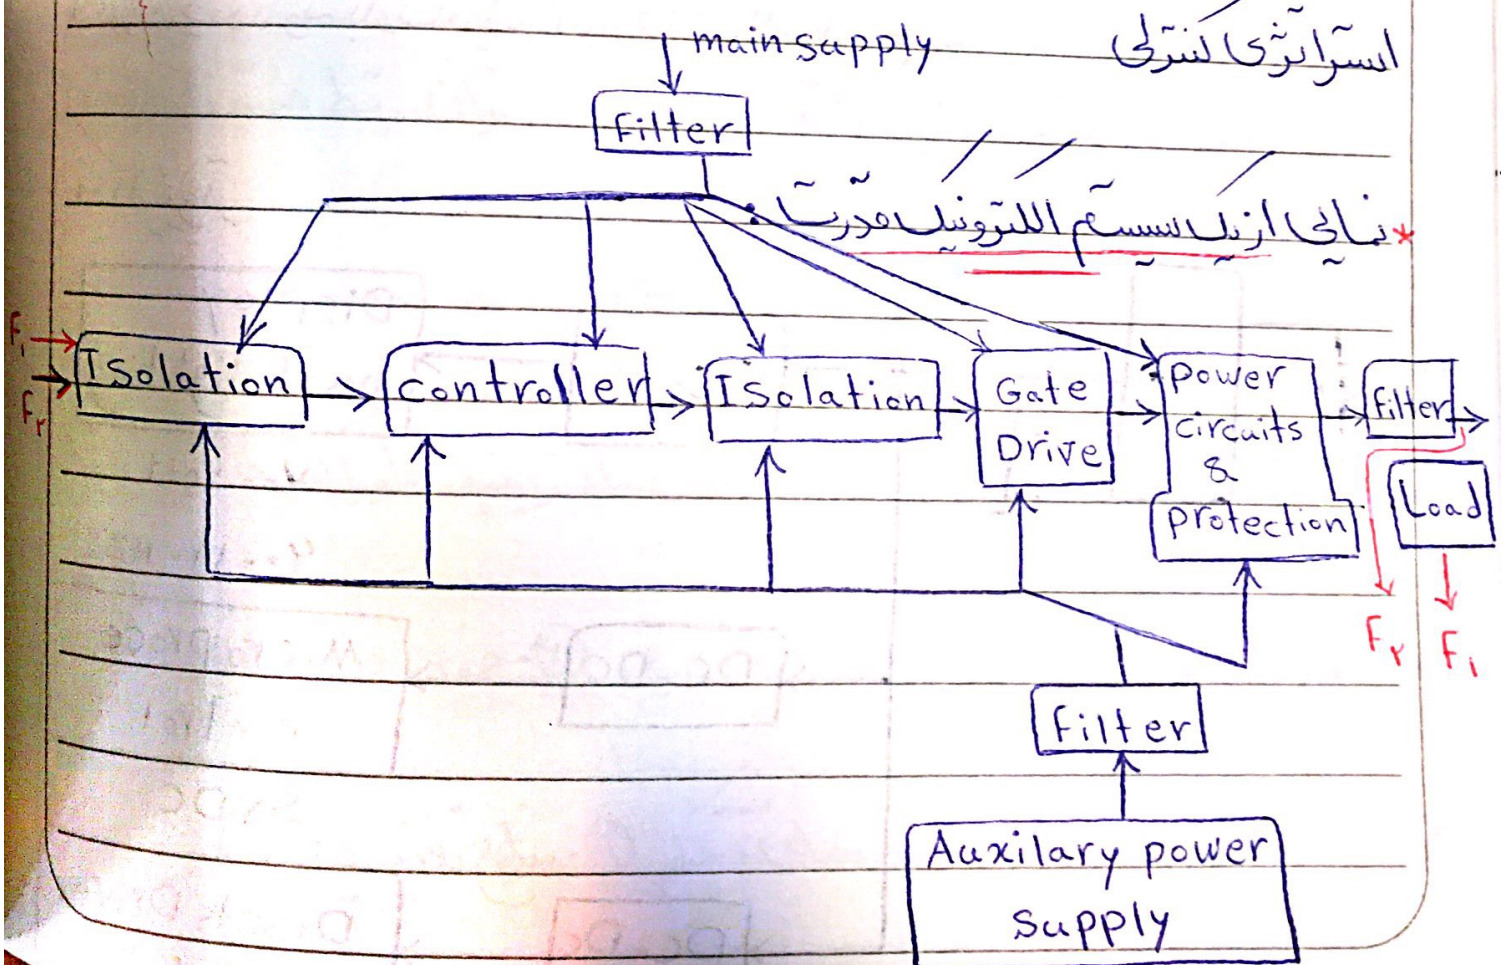 استراتژی کنترلی
main supply
Filter
* نمایی از یک سیستم الکترونیک قدرت:
F۱
F۲
Isolation
controller
Isolation
Gate
Drive
power
circuits
&
protection
filter
Load
F۲
F۱
Filter
Auxilary power
supply